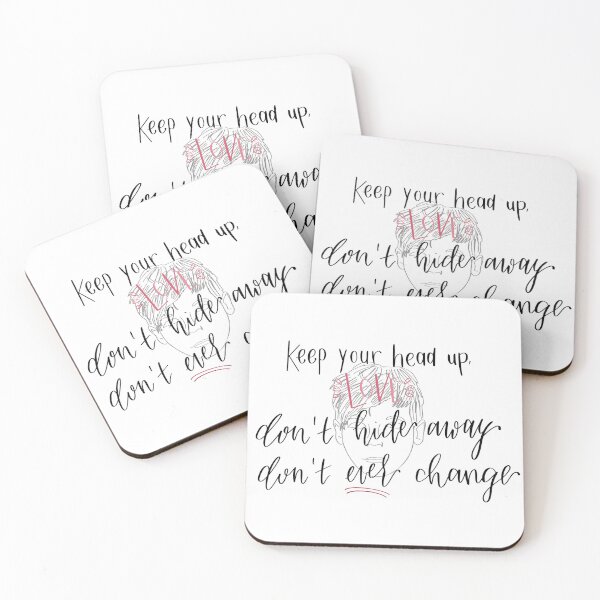 Keep your head up,
LOVE
away
Keep your head up,
LOVE
don't hide away
don't ever change
Keep your head up,
LOVE
don't hide away
don't ever
Keep your head up,
LOVE
don't hide away
don't ever change